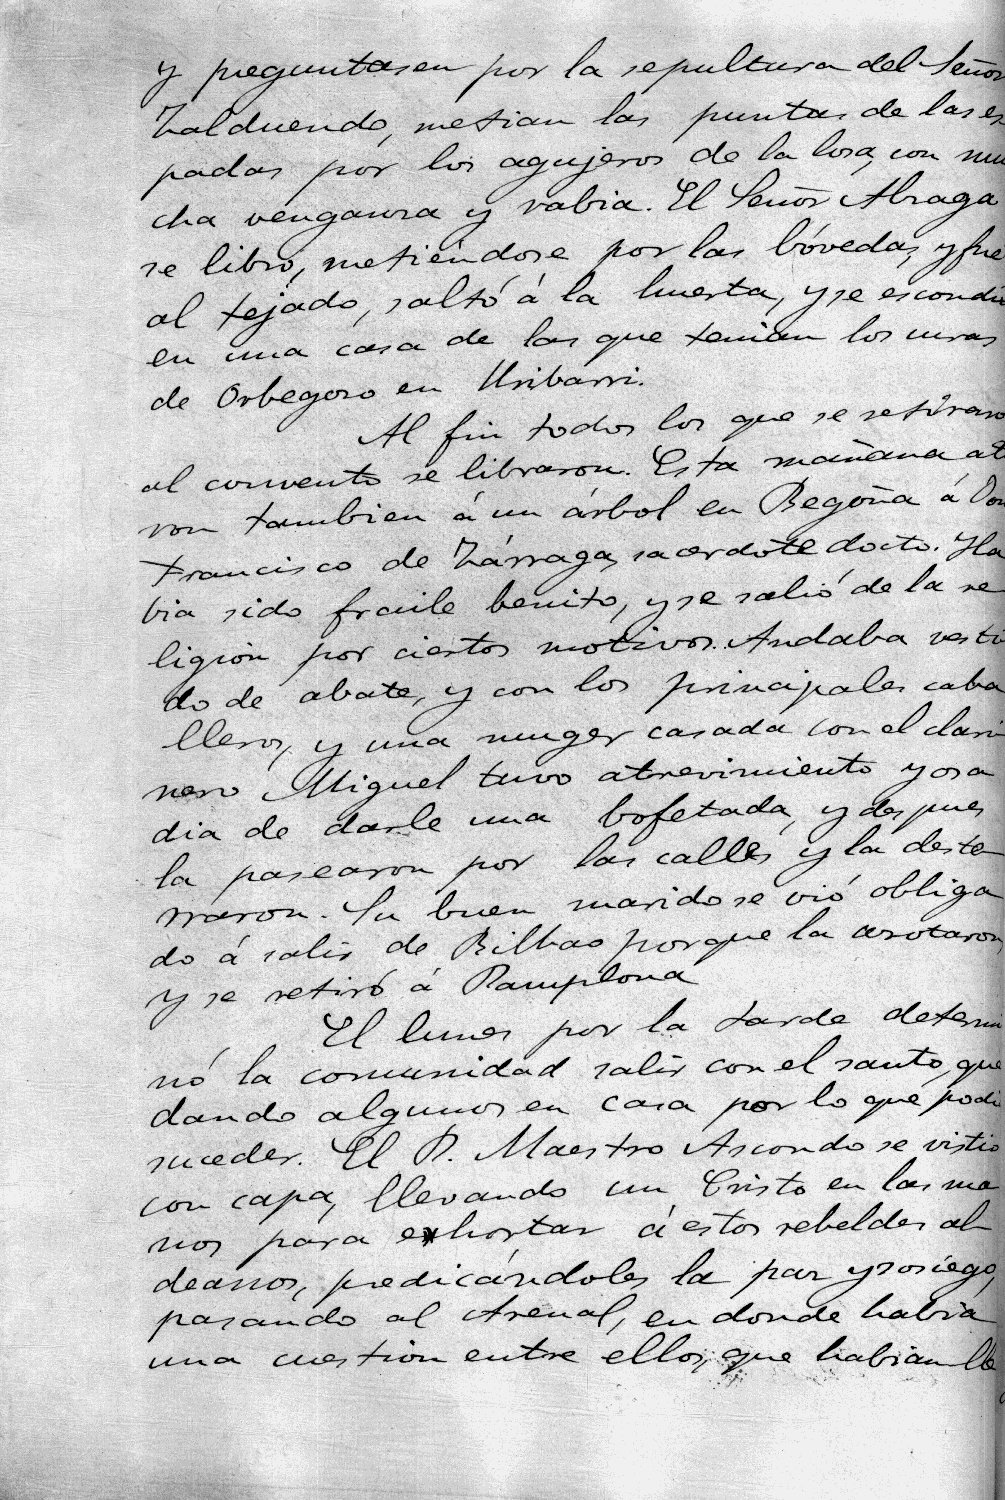 y preguntasen por la sepultura del Señor
Zalduendo, metian las puntas de las es
padas por los agujeros de la losa, con mu
cha venganza y rabia. El Señor Abraga
se libró, metiéndose por las bóvedas, y fue
al tejado, saltó á la huerta, y se escondió
en una casa de las que tenian los curas
de Orbegozo en Uribarri.
Al fin todos los que se retiraron
al convento se libraron. Esta mañana at
ron tambien á un árbol en Begoña á Don
Francisco de Zárraga, sacerdote docto. Ha
bia sido fraile benito, y se salió de la re
ligión por ciertos motivos. Andaba vesti
do de abate, y con los principales caba
lleros, y una muger casada con el clari
nero Miguel tuvo atrevimiento y osa
dia de darle una bofetada, y despues
la pasearon por las calles y la deste
rraron. Su buen marido se vió obliga
do á salir de Bilbao porque la azotaron,
y se retiró á Pamplona
El lunes por la tarde determi
nó la comunidad salir con el santo, que
dando algunos en casa por lo que podi
suceder. El P. Maestro Ascondo se vistió
con capa, llevando un Cristo en las ma
nos para exhortar á estos rebeldes al
deanos, predicándoles la paz y sosiego,
pasando al Arenal, en donde habia
una cuestion entre ellos, que habian lle